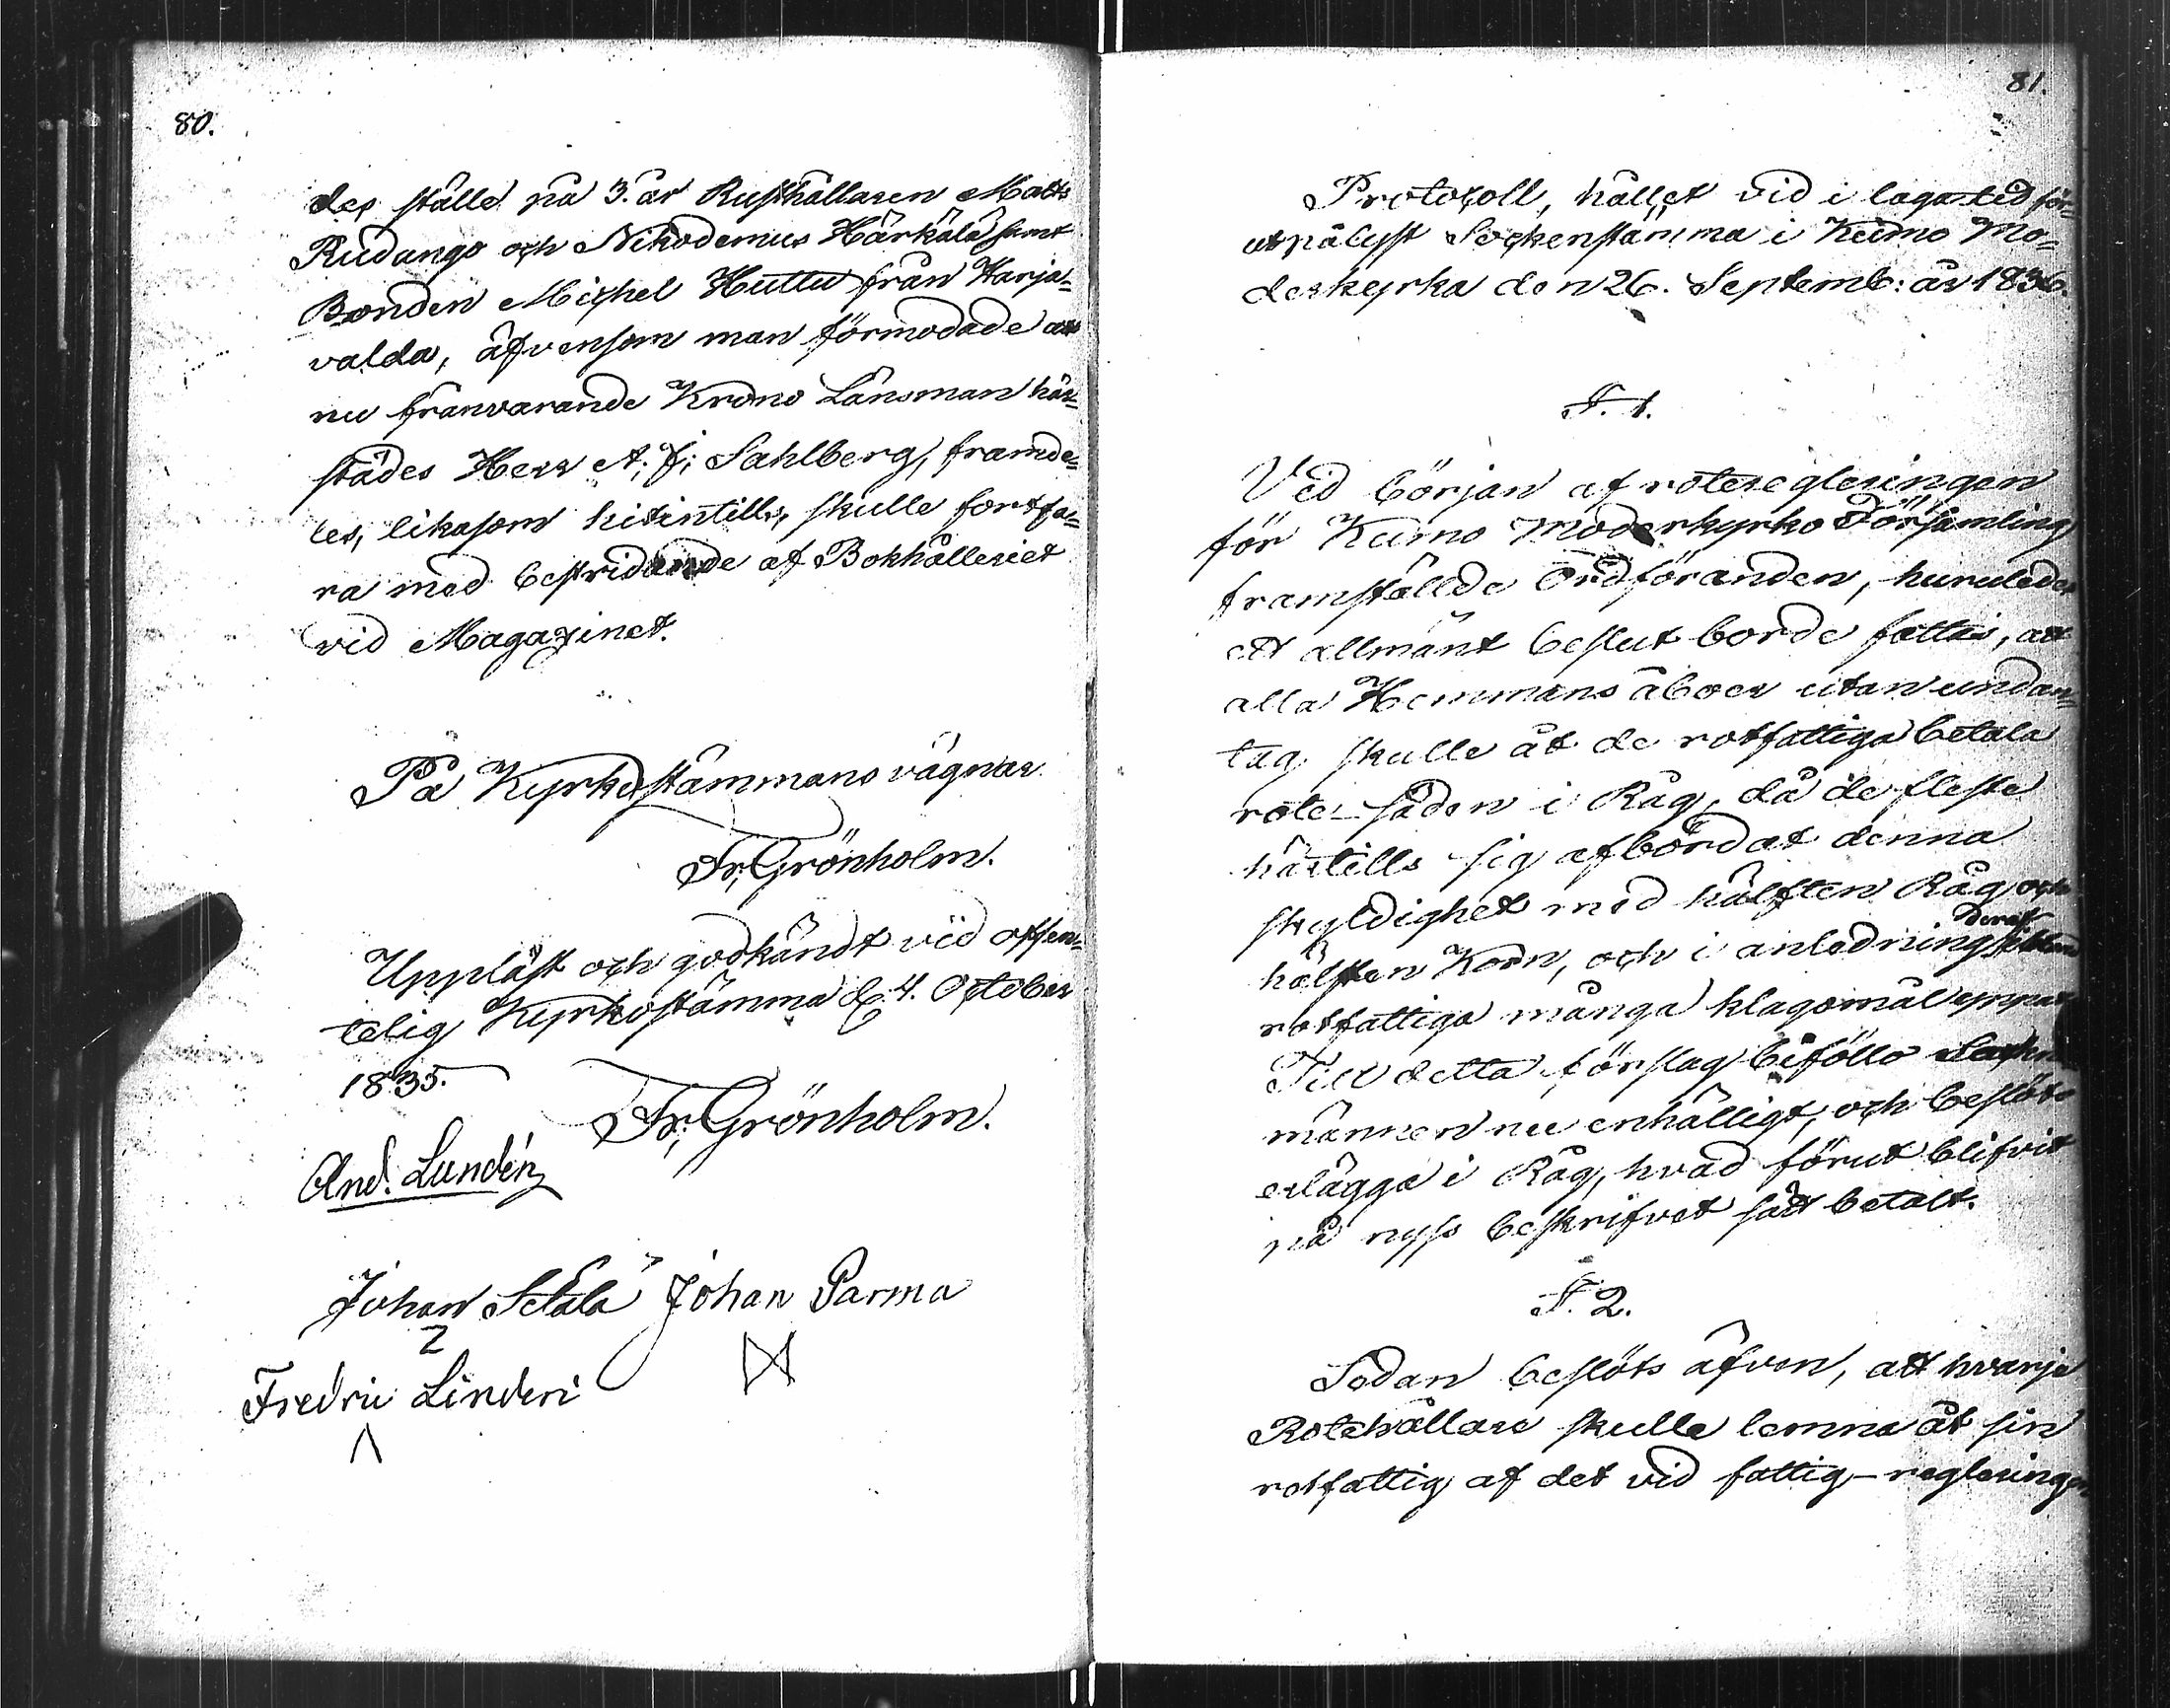 80.
des ställe på 3. år Rusthållaren Matts
Rudango och Nikodemus Härkälä samt
Bonden Michel Huttu från Harja=
valda, äfvensom man förmodade att
nu frånvarande Krono Länsman här=
städes Herr A. J; Sahlberg, framde=
les, likasom hitintills, skulle fortfa=
ra med bestridande af Bokhålleriet
vid Magazinet.
På Kyrkostämmans vägnar
Fr; Grönholm.
Uppläst och godkändt vid offen=
telig Kyrkostämma d. 4. October
1835.
Fr; Grönholm.
And. Lundén
Johan Setälä Johan Parma
Fredric Linderi
81.
Protocoll, hållet vid i laga tid för=
utpålyst Sockenstämma i Kumo Mo=
derkyrka den 26. Septemb: år 1836.
§. 1.
Vid början af roteregleringen
för Kumo Moderkyrko Församling
framställde Ordföranden, huruledes
ett allmänt beslut borde fattas, att
alla Hemmans åboer utan undan=
tag skulle åt de rotfattiga betala
rote-säden i Råg, då de fleste
härtills sig afbördat denna
skyldighet med hälften Råg och
hälften Korn, och i anledning deraf
rotfattiga många klagomål
Till detta förslag biföllo Socken
männen nu enhälligt, och beslöts
erlägga i Råg, hvad förut blifvit
på nyss beskrifvet sätt betalt.
§. 2.
Sedan beslöts äfven, att hvarje
Rotehållare skulle lemna åt sin
rotfattig af det vid fattig-reglering